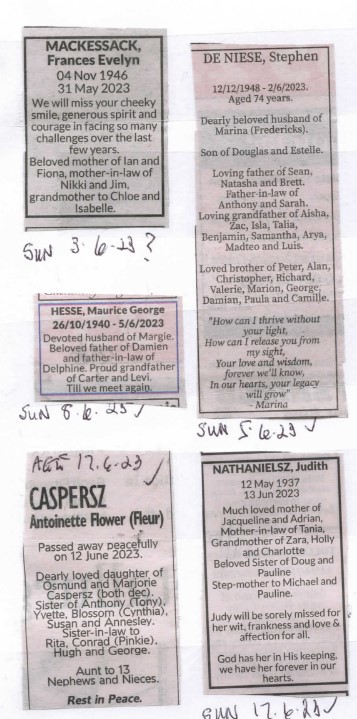 MACKESSACK,
Frances Evelyn
04 Nov 1946
31 May 2023
We will miss your cheeky
smile, generous spirit and
courage in facing so many
challenges over the last
few years.
Beloved mother of Ian and
Fiona, mother-in-law of
Nikki and Jim,
grandmother to Chloe and
Isabelle.
SUN 3.6.23 ?
DE NIESE, Stephen
12/12/1948 - 2/6/2023.
Aged 74 years.
Dearly beloved husband of
Marina (Fredericks).
Son of Douglas and Estelle.
Loving father of Sean,
Natasha and Brett.
Father-in-law of
Anthony and Sarah.
Loving grandfather of Aisha,
Zac, Isla, Talia,
Benjamin, Samantha, Arya,
Madteo and Luis.
Loved brother of Peter, Alan,
Christopher, Richard,
Valerie, Marion, George,
Damian, Paula and Camille.
"How can I thrive without
your light,
How can I release you from
my sight,
Your love and wisdom,
forever we'll know,
In our hearts, your legacy
will grow"
- Marina
SUN 5.6.23 ✓
HESSE, Maurice George
26/10/1940 - 5/6/2023
Devoted husband of Margie.
Beloved father of Damien
and father-in-law of
Delphine. Proud grandfather
of Carter and Levi.
Till we meet again.
SUN 8.6.23 ✓
AGE 17.6.23 ✓
CASPERSZ
Antoinette Flower (Fleur)
Passed away peacefully
on 12 June 2023.
Dearly loved daughter of
Osmund and Marjorie
Caspersz (both dec).
Sister of Anthony (Tony),
Yvette, Blossom (Cynthia),
Susan and Annesley.
Sister-in-law to
Rita, Conrad (Pinkie),
Hugh and George.
Aunt to 13
Nephews and Nieces.
Rest in Peace.
NATHANIELSZ, Judith
12 May 1937
13 Jun 2023
Much loved mother of
Jacqueline and Adrian,
Mother-in-law of Tania,
Grandmother of Zara, Holly
and Charlotte
Beloved Sister of Doug and
Pauline
Step-mother to Michael and
Pauline.
Judy will be sorely missed for
her wit, frankness and love &
affection for all.
God has her in His keeping,
we have her forever in our
hearts.
SUN 17.6.23 ✓